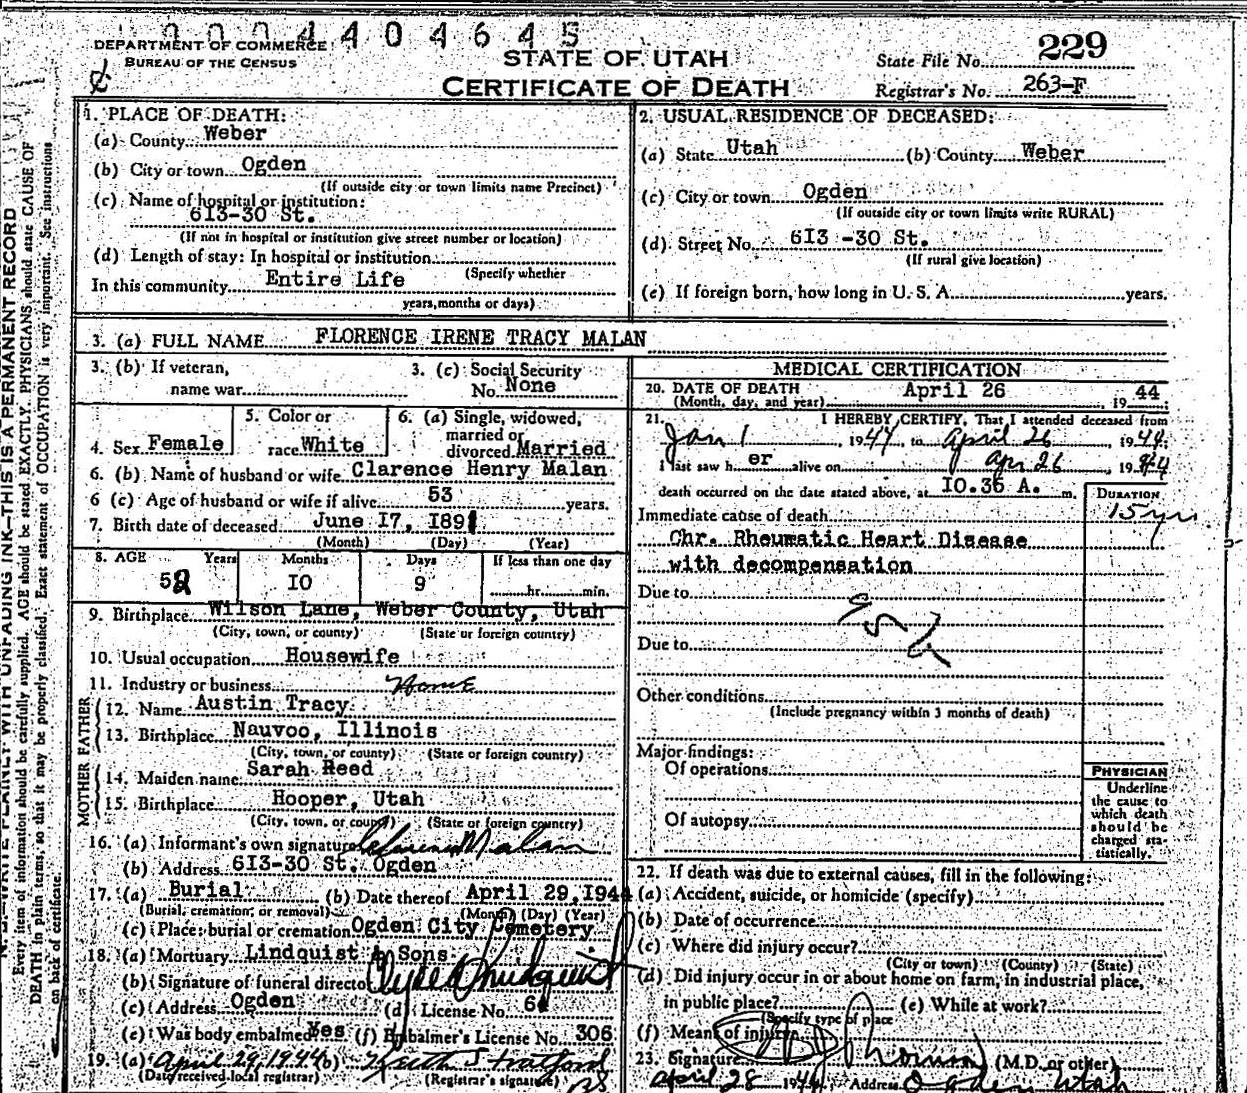 0 0 0 4 4 0 4 6 4 5
DEPARTMENT OF COMMERCE
BUREAU OF THE CENSUS
STATE OF UTAH
CERTIFICATE OF DEATH
State File No. 229
Registrar's No. 263-F
1. PLACE OF DEATH:
(a) County Weber
(b) City or town Ogden
(If outside city or town limits name Precinct)
(c) Name of hospital or institution:
6I3-30 St.
(If not in hospital or institution give street number or location)
(d) Length of stay: In hospital or institution
(Specify whether
In this community Entire Life
years, months or days)
2. USUAL RESIDENCE OF DECEASED:
(a) State Utah (b) County Weber
(c) City or town Ogden
(If outside city or town limits write RURAL)
(d) Street No. 6I3 -30 St.
(If rural give location)
(e) If foreign born, how long in U. S. A. years.
3. (a) FULL NAME FLORENCE IRENE TRACY MALAN
3. (b) If veteran,
name war
3. (c) Social Security
No. None
4. Sex Female
5. Color or
race White
6. (a) Single, widowed,
married or
divorced Married
6. (b) Name of husband or wife Clarence Henry Malan
6 (c) Age of husband or wife if alive 53 years.
7. Birth date of deceased June I7, I891
(Month) (Day) (Year)
8. AGE Years Months Days If less than one day
52 IO 9 hr. min.
9. Birthplace Wilson Lane, Weber County, Utah
(City, town, or county) (State or foreign country)
10. Usual occupation Housewife
11. Industry or business Home
FATHER
12. Name Austin Tracy
13. Birthplace Nauvoo, Illinois
(City, town, or county) (State or foreign country)
MOTHER
14. Maiden name Sarah Reed
15. Birthplace Hooper, Utah
(City, town, or county) (State or foreign country)
16. (a) Informant's own signature Clarence Malan
(b) Address 6I3-30 St. Ogden
17. (a) Burial (b) Date thereof April 29, 1944
(Burial, cremation, or removal) (Month) (Day) (Year)
(c) Place: burial or cremation Ogden City Cemetery
18. (a) Mortuary Lindquist & Sons
(b) Signature of funeral director Clyde Lindquist
(c) Address Ogden (d) License No.
(e) Was body embalmed Yes (f) Embalmer's License No. 306
19. (a) April 29, 1944 (b) Keith Stratford
(Date received local registrar) (Registrar's signature)
MEDICAL CERTIFICATION
20. DATE OF DEATH April 26 19 44
(Month, day, and year)
21. I HEREBY CERTIFY, That I attended deceased from
Jan 1, 1944, to April 26, 1944
I last saw h er alive on Apr 26, 1944
death occurred on the date stated above, at IO.36 A. m.
DURATION
Immediate cause of death 15 yrs
Chr. Rheumatic Heart Disease
with decompensation
Due to
Due to
Other conditions
(Include pregnancy within 3 months of death)
Major findings:
Of operations
Of autopsy
PHYSICIAN
Underline
the cause to
which death
should be
charged sta-
tistically.
22. If death was due to external causes, fill in the following:
(a) Accident, suicide, or homicide (specify)
(b) Date of occurrence
(c) Where did injury occur?
(City or town) (County) (State)
(d) Did injury occur in or about home on farm, in industrial place,
in public place? (e) While at work?
(Specify type of place
(f) Means of injury
23. Signature (M.D. or other)
April 28 1944 Address Ogden Utah
N. B.—WRITE PLAINLY WITH UNFADING INK—THIS IS A PERMANENT RECORD
Every item of information should be carefully supplied. AGE should be stated EXACTLY. PHYSICIANS should state CAUSE OF
DEATH in plain terms, so that it may be properly classified. Exact statement of OCCUPATION is very important. See instructions
on back of certificate.